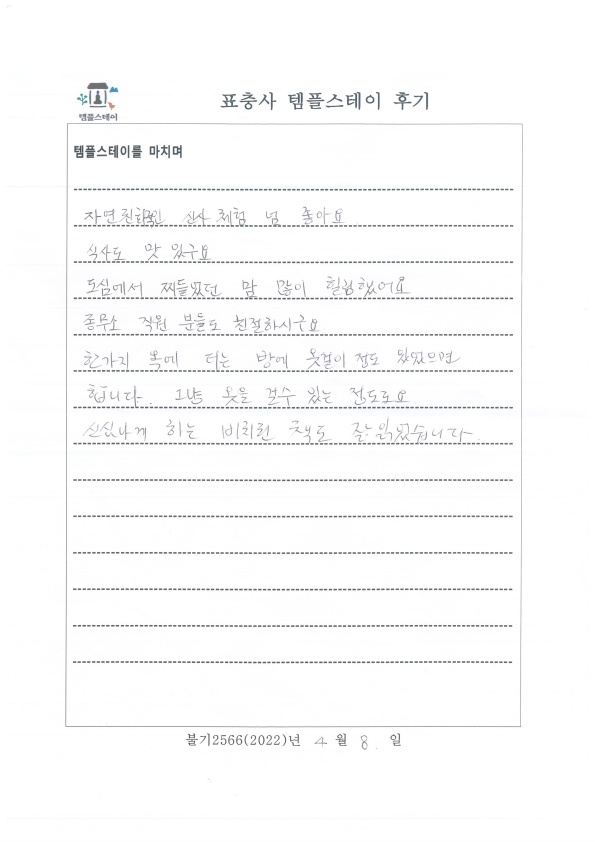 템플스테이
표충사 템플스테이 후기
템플스테이를 마치며
자연친화적인 산사 체험 넘 좋아요
식사도 맛 있구요
도심에서 찌들었던 맘 많이 힐링했어요
종무소 직원 분들도 친절하시구요
한가지 더는 방에 옷걸이 정도 있었으면
합니다. 그냥 옷을 걸수 있는 정도로요
하는 비치된 책도 잘 읽었습니다.
불기2566(2022)년 4월 8. 일